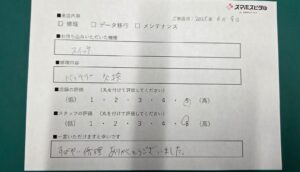 スマホスピタル
■来店内容
ご来店日：2025年6月8日
☑修理 □データ移行 □メンテナンス
■お持ち込みいただいた機種
スイッチ
■修理内容
バッテリー 交換
■店舗の評価 (丸を付けて評価してください)
(低) 1 ・ 2 ・ 3 ・ 4 ・ 5 (高)
■スタッフの評価 (丸を付けて評価してください)
(低) 1 ・ 2 ・ 3 ・ 4 ・ 5 (高)
■一言いただけますと幸いです
すばやい修理 ありがとうございました。